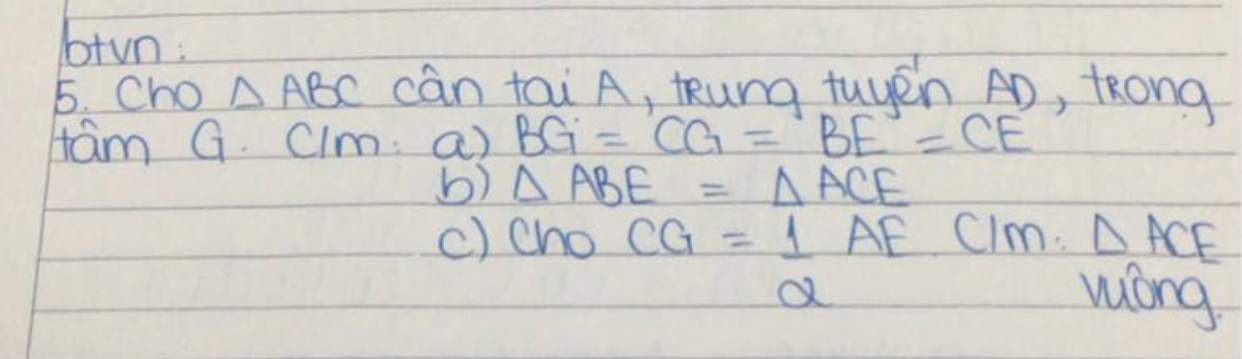 btvn:
5. Cho Δ ABC cân tai A, trung tuyến AD, trọng
tâm G. C/m: a) BG = CG = BE = CE
b) Δ ABE = Δ ACE
c) Cho CG = 1/2 AE C/m: Δ ACE
vuông.